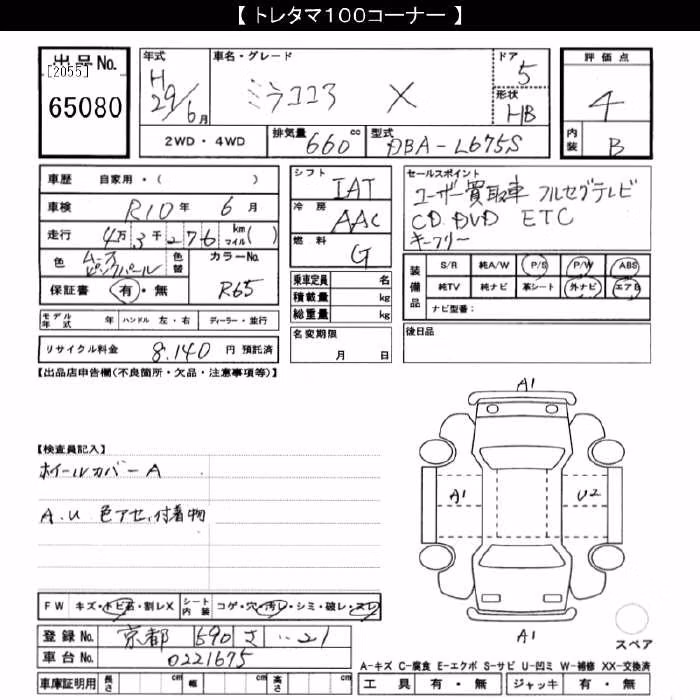 【 トレタマ100コーナー 】
出品No. [2055] 65080
年式 H29/6月
車名・グレード ミラココア X
ドア 5
形状 HB
評価点 4
内装 B
2WD・4WD 排気量 660 cc 型式 DBA-L675S
車歴 自家用・( )
車検 R10年 6月
走行 4万3千276 km マイル( )
色 ムース ピンクパール 色替 カラーNo. R65
保証書 有・無
シフト IAT
冷房 AAC
燃料 G
乗車定員 名
積載量 kg
総重量 kg
セールスポイント
ユーザー買取車 フルセグテレビ
CD DVD ETC
キーフリー
装備品 S/R 純A/W P/S P/W ABS
純TV 純ナビ 革シート 外ナビ エアB
ナビ型番:
モデル年式 年 ハンドル 左・右 ディーラー・並行
名変期限 月 日
後日品
リサイクル料金 8,140 円 預託済
【出品店申告欄(不良箇所・欠品・注意事項等)】
A1
【検査員記入】
ホイールカバーA
A1 U2
A.U 色アセ、付着物
FW キズ・トビ石・割レX シート内装 コゲ・穴・汚レ・シミ・破レ・スレ
登録No. 京都 590 さ ‥21
A1
スペア
車台No. 0221675
A-キズ C-腐食 E-エクボ S-サビ U-凹ミ W-補修 XX-交換済
車庫証明用 長さ cm 幅 cm 高さ cm
工具 有・無 ジャッキ 有・無